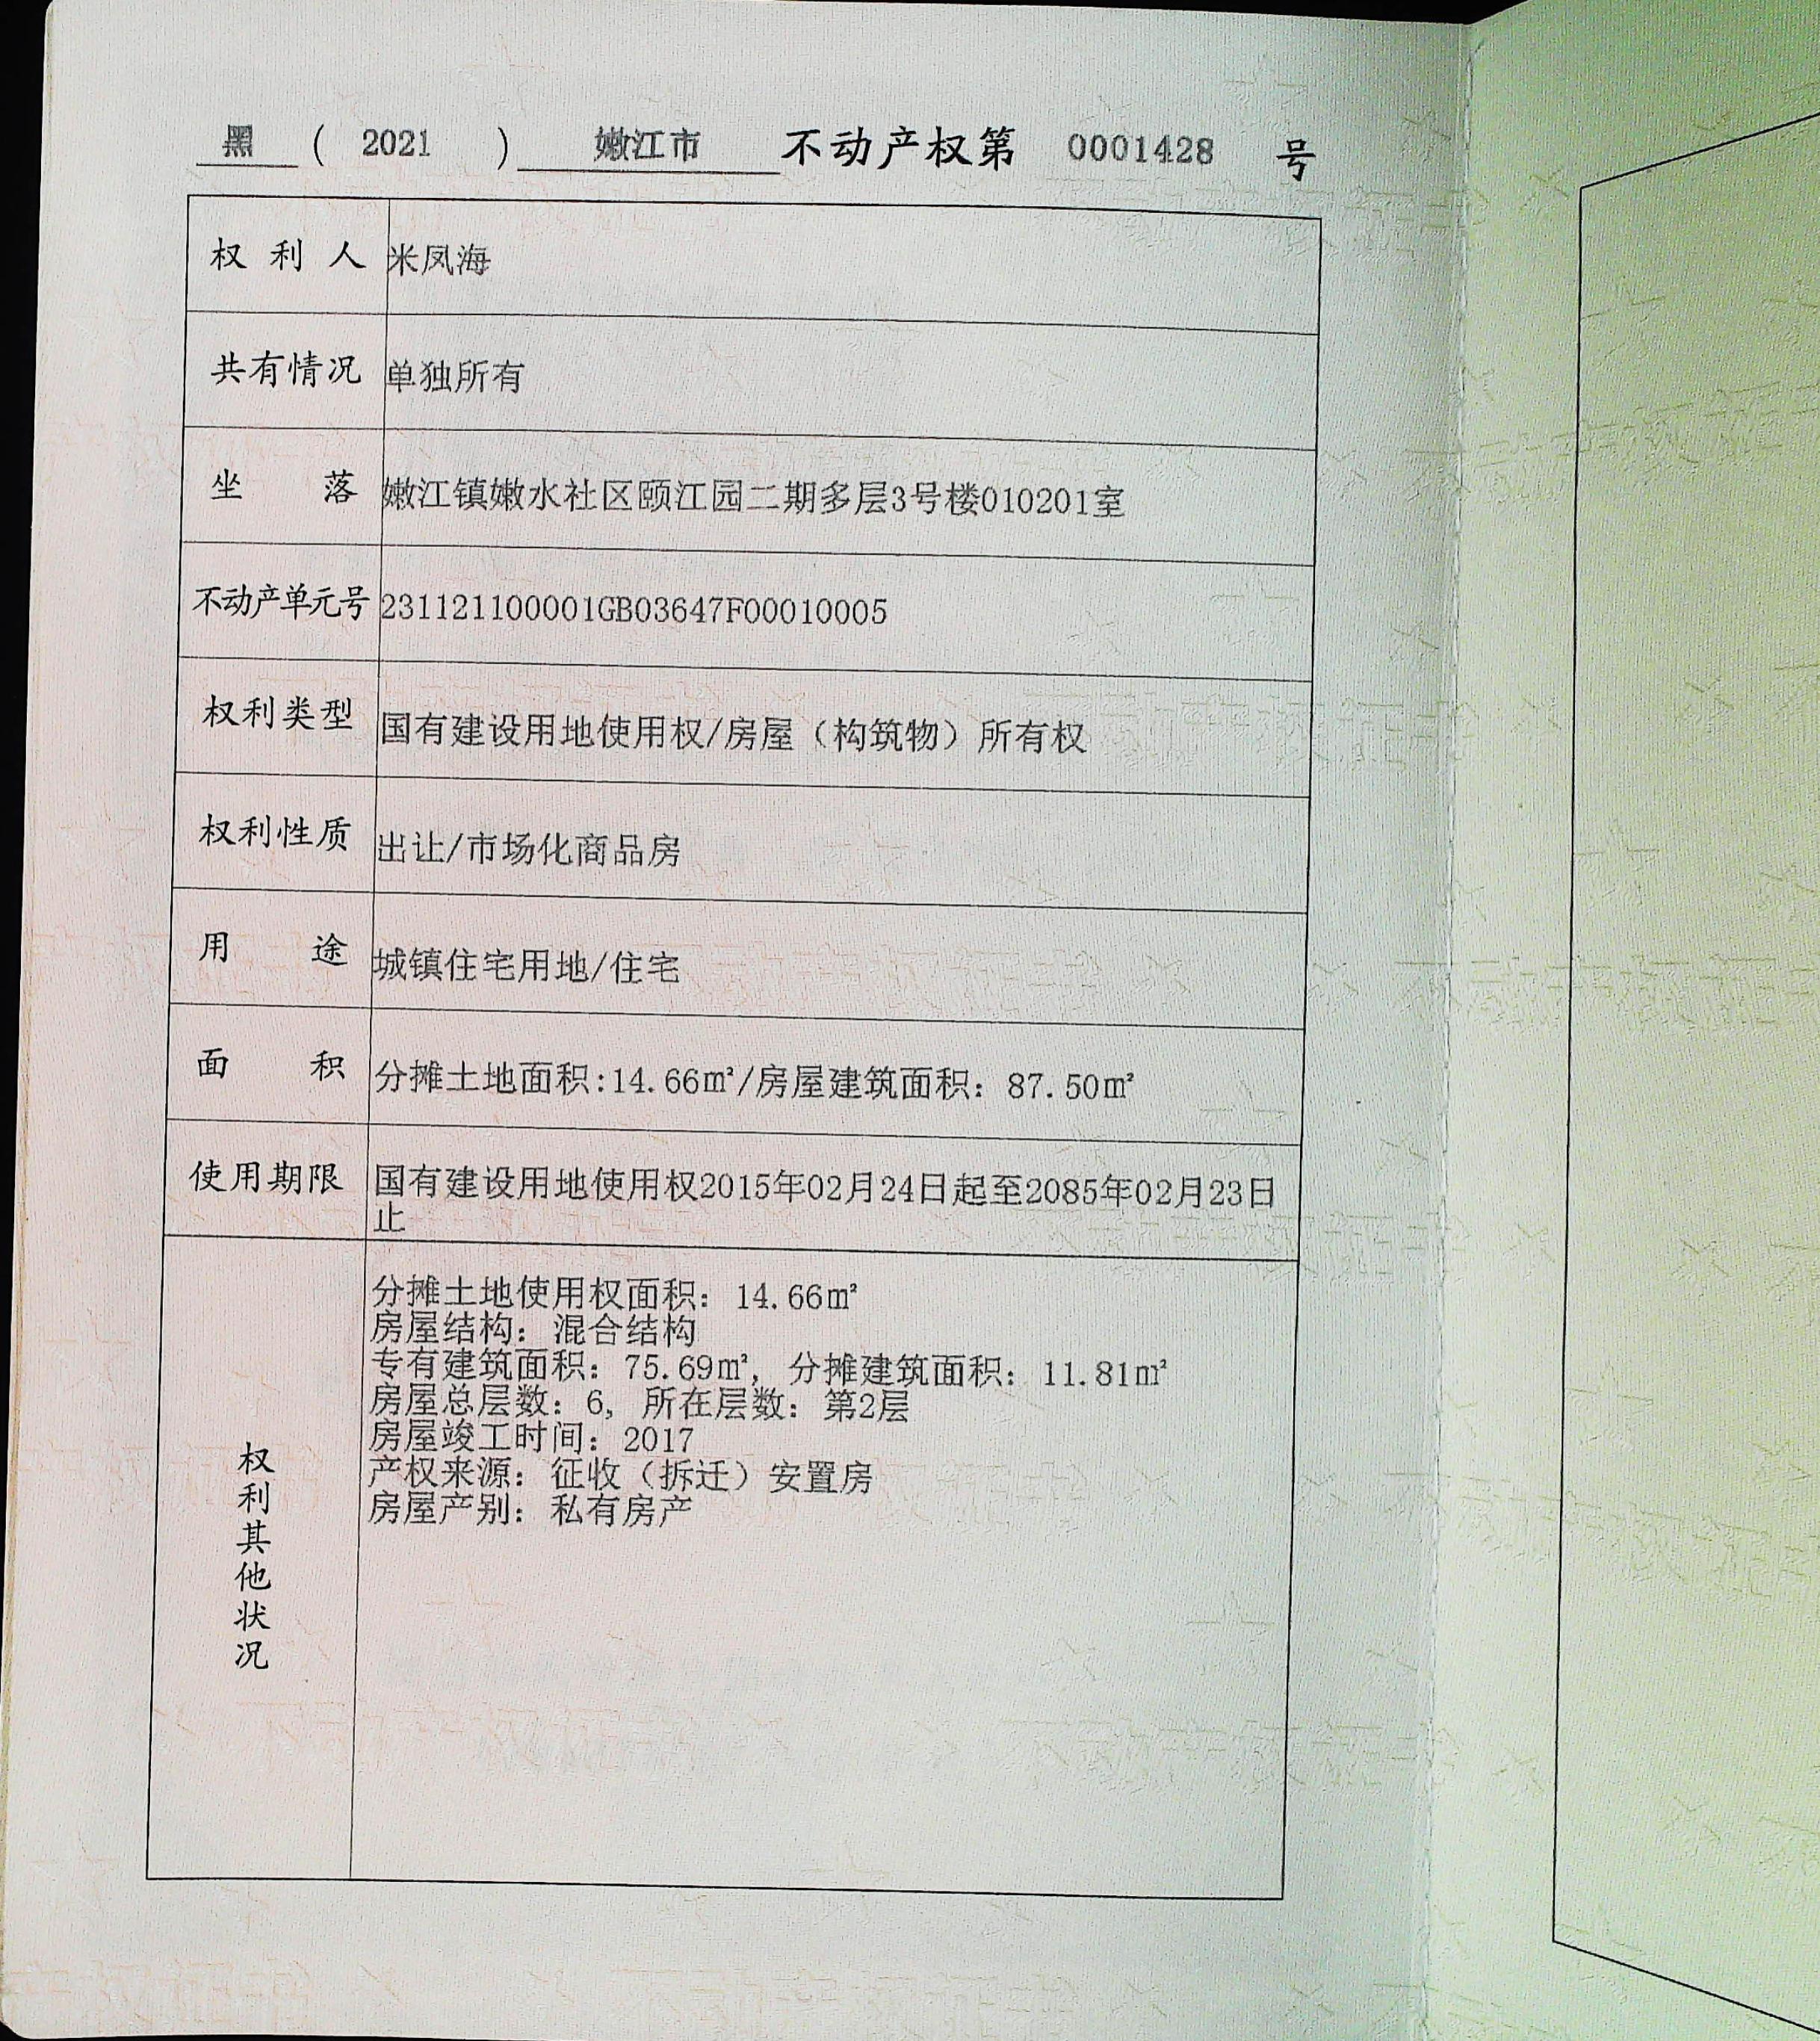 黑 ( 2021 ) 嫩江市 不动产权第 0001428 号
权利人 米凤海
共有情况 单独所有
坐落 嫩江镇嫩水社区颐江园二期多层3号楼010201室
不动产单元号 231121100001GB03647F00010005
权利类型 国有建设用地使用权/房屋（构筑物）所有权
权利性质 出让/市场化商品房
用途 城镇住宅用地/住宅
面积 分摊土地面积:14.66㎡/房屋建筑面积：87.50㎡
使用期限 国有建设用地使用权2015年02月24日起至2085年02月23日
止
权利其他状况
分摊土地使用权面积：14.66㎡
房屋结构：混合结构
专有建筑面积：75.69㎡，分摊建筑面积：11.81㎡
房屋总层数：6，所在层数：第2层
房屋竣工时间：2017
产权来源：征收（拆迁）安置房
房屋产别：私有房产